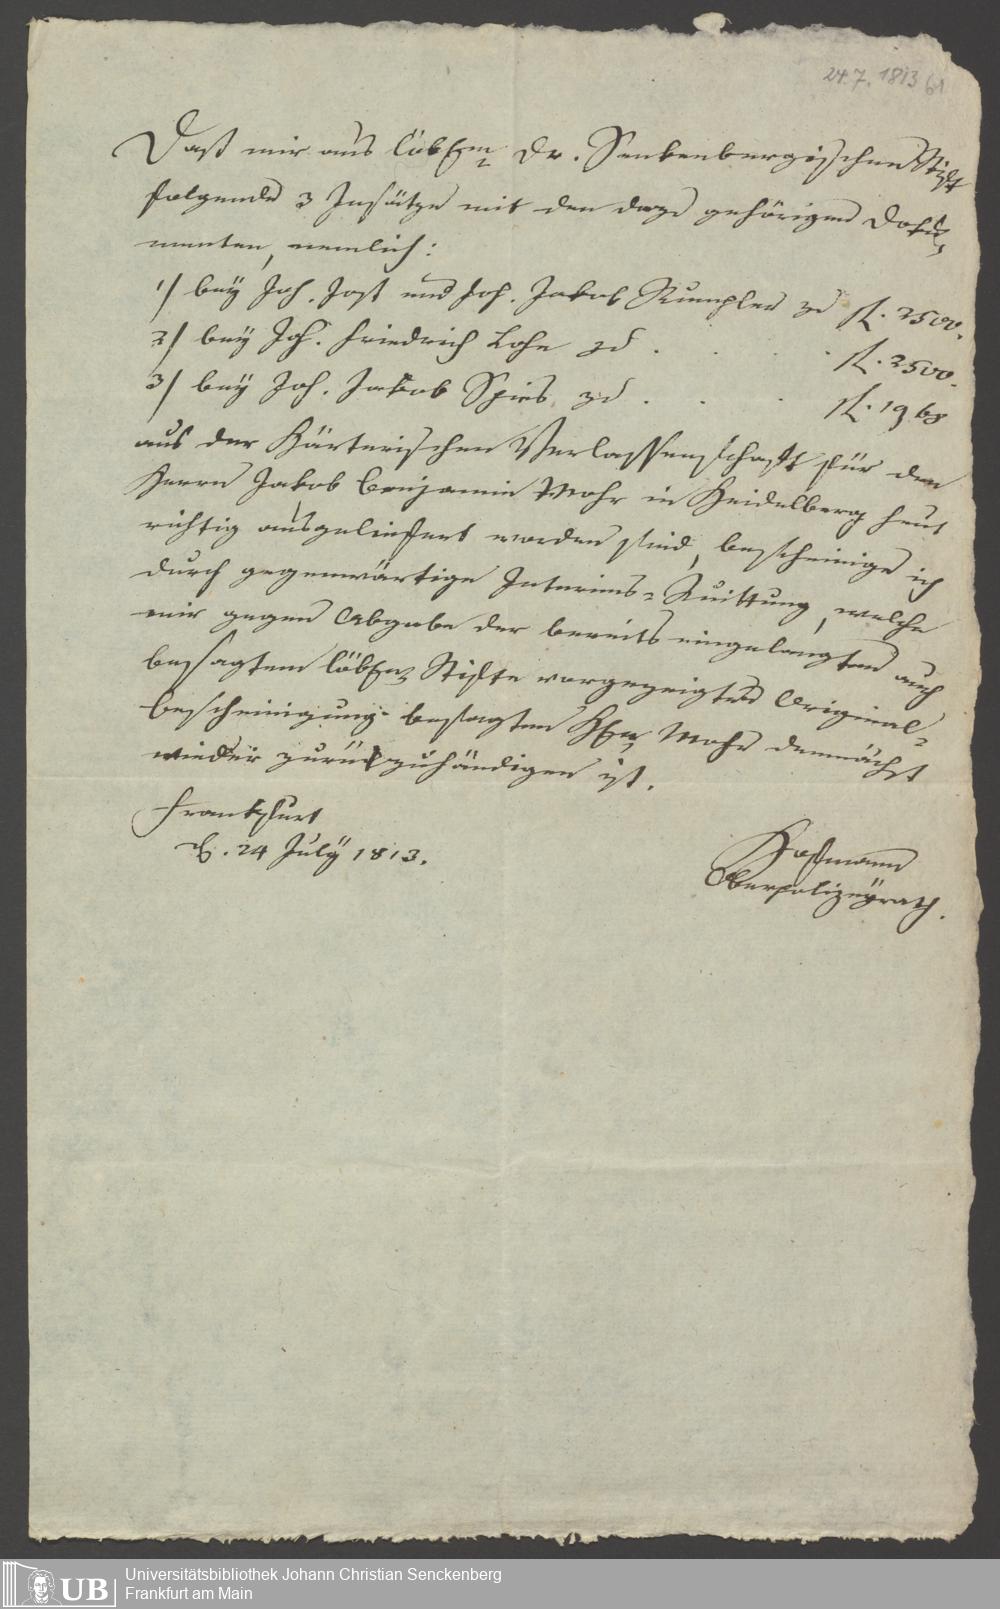 24.7.1813 61
Daß mir aus löbl. Dr. Senkenbergischen Stift
folgende 3 Insätze mit den dazu gehörigen Doku
menten, nemlich:
1/ bey Joh. Jost und Joh. Jakob Rumpler zu fl. 2500.
2/ bey Joh. Friedrich Lohe zu . . . . fl. 2500.
3/ bey Joh. Jakob Spies zu . . . fl. 1968
aus der Härterischen Verlassenschaft für den
Herrn Jakob Benjamin Mohr in Heidelberg heut
richtig ausgeliefert worden sind, bescheinige ich
durch gegenwärtige Interims-Quittung, welche
mir gegen Abgabe der bereits eingelangten auch
besagtem löbl. Stifte vorgezeigten Original-
bescheinigung besagten Hrn Mohr demnächst
wieder zurückzuhändigen ist.
Frankfurt
d. 24 July 1813.
Hoffmann
Oberpolizeyrath.
UB
Universitätsbibliothek Johann Christian Senckenberg
Frankfurt am Main